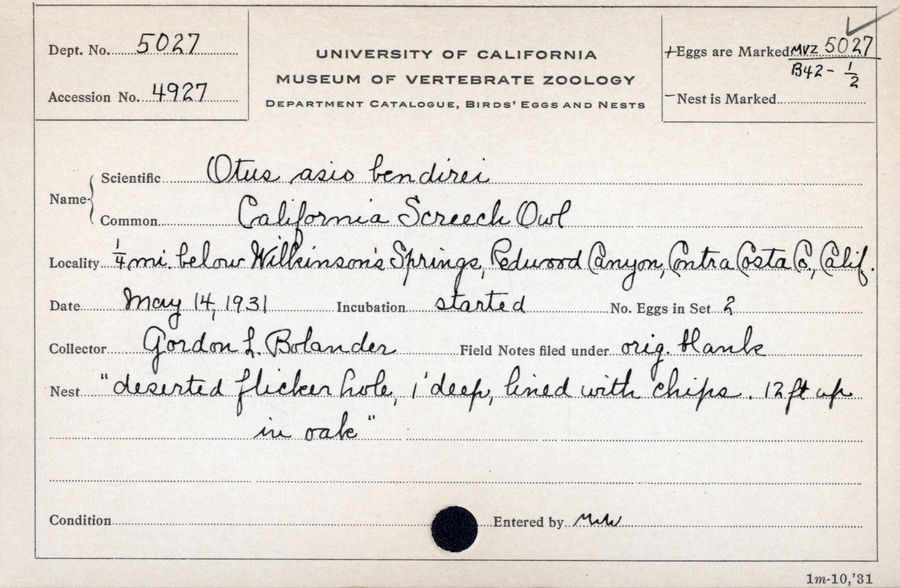 Dept. No. 5027
Accession No. 4927
UNIVERSITY OF CALIFORNIA
MUSEUM OF VERTEBRATE ZOOLOGY
DEPARTMENT CATALOGUE, BIRDS' EGGS AND NESTS
+Eggs are Marked MVZ 5027
B42- 1/2
-Nest is Marked
Name
Scientific Otus asio bendirei
Common California Screech Owl
Locality 1/4 mi. below Wilkinson's Springs, Redwood Canyon, Contra Costa Co., Calif.
Date May 14, 1931 Incubation started No. Eggs in Set 2
Collector Gordon L. Bolander Field Notes filed under orig. blank
Nest "deserted flicker hole, 1' deep, lined with chips. 12 ft up
in oak"
Condition Entered by
1m-10,'31